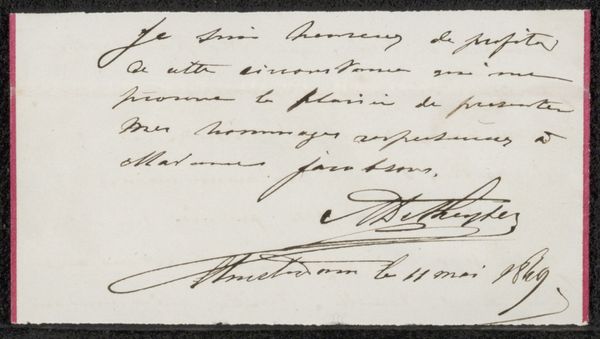 Je suis heureux de profiter
de cette circonstance qui me
procure le plaisir de presenter
mes hommages respectueux à
Madame Jacobson.
Amsterdam le 11 mai 1869